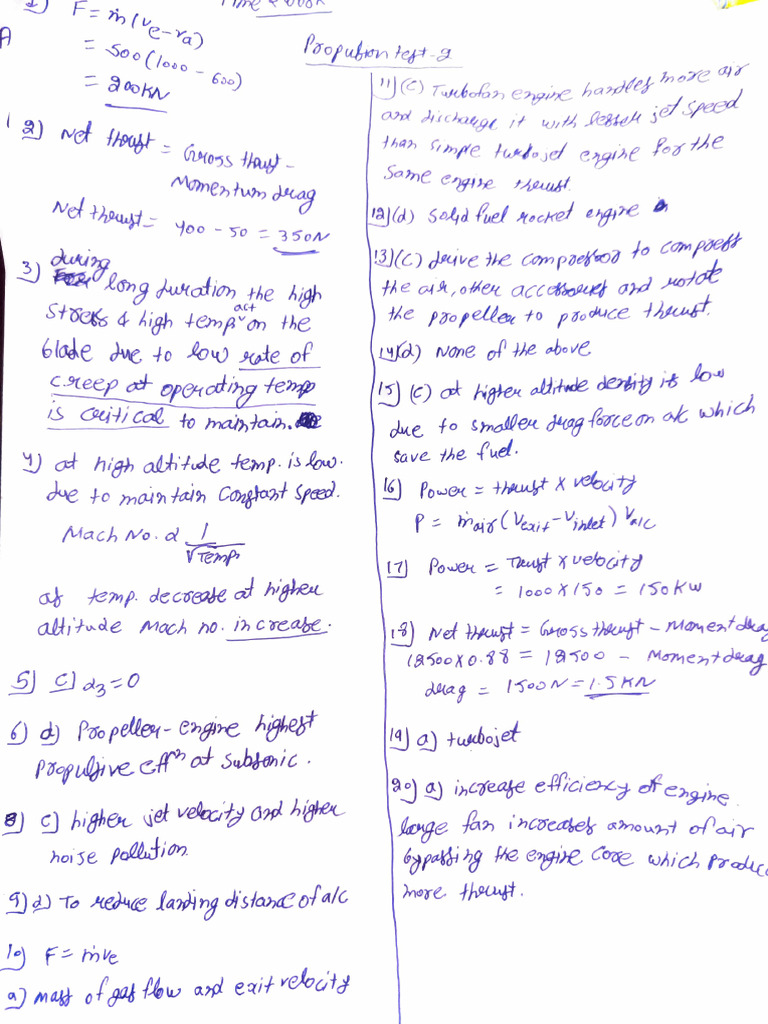 Propulsion test-2
1) F = ṁ(Ve-Va)
= 500(1000 - 600)
= 200KN
2) Net thrust = Gross thrust -
Momentum drag
Net thrust = 400 - 50 = 350N
3) during long duration the high
stress & high temp act on the
blade due to low rate of
creep at operating temp
is critical to maintain.
4) at high altitude temp. is low.
due to maintain constant speed.
Mach No. α 1/√Temp.
as temp. decrease at higher
altitude Mach no. increase.
5) C) α3 = 0
6) d) Propeller-engine highest
Propulsive effn at subsonic.
8) c) higher jet velocity and higher
noise pollution
9) d) To reduce landing distance of a/c
10) F = ṁve
a) mass of gas flow and exit velocity
11) (c) Turbofan engine handles more air
and discharge it with lesser jet speed
than simple turbojet engine for the
same engine thrust.
12) (d) solid fuel rocket engine
13) (c) drive the compressor to compress
the air, other accessories and rotate
the propeller to produce thrust.
14) (d) None of the above
15) (c) at higher altitude density is low
due to smaller drag force on a/c which
save the fuel.
16) Power = thrust x velocity
P = ṁair (Vexit - Vinlet) Va/c
17) Power = Thrust x velocity
= 1000 x 150 = 150 KW
18) Net thrust = Gross thrust - Moment drag
12500 x 0.88 = 12500 - Moment drag
drag = 1500N = 1.5KN
19) a) turbojet
20) a) increase efficiency of engine.
large fan increases amount of air
bypassing the engine core which produce
more thrust.